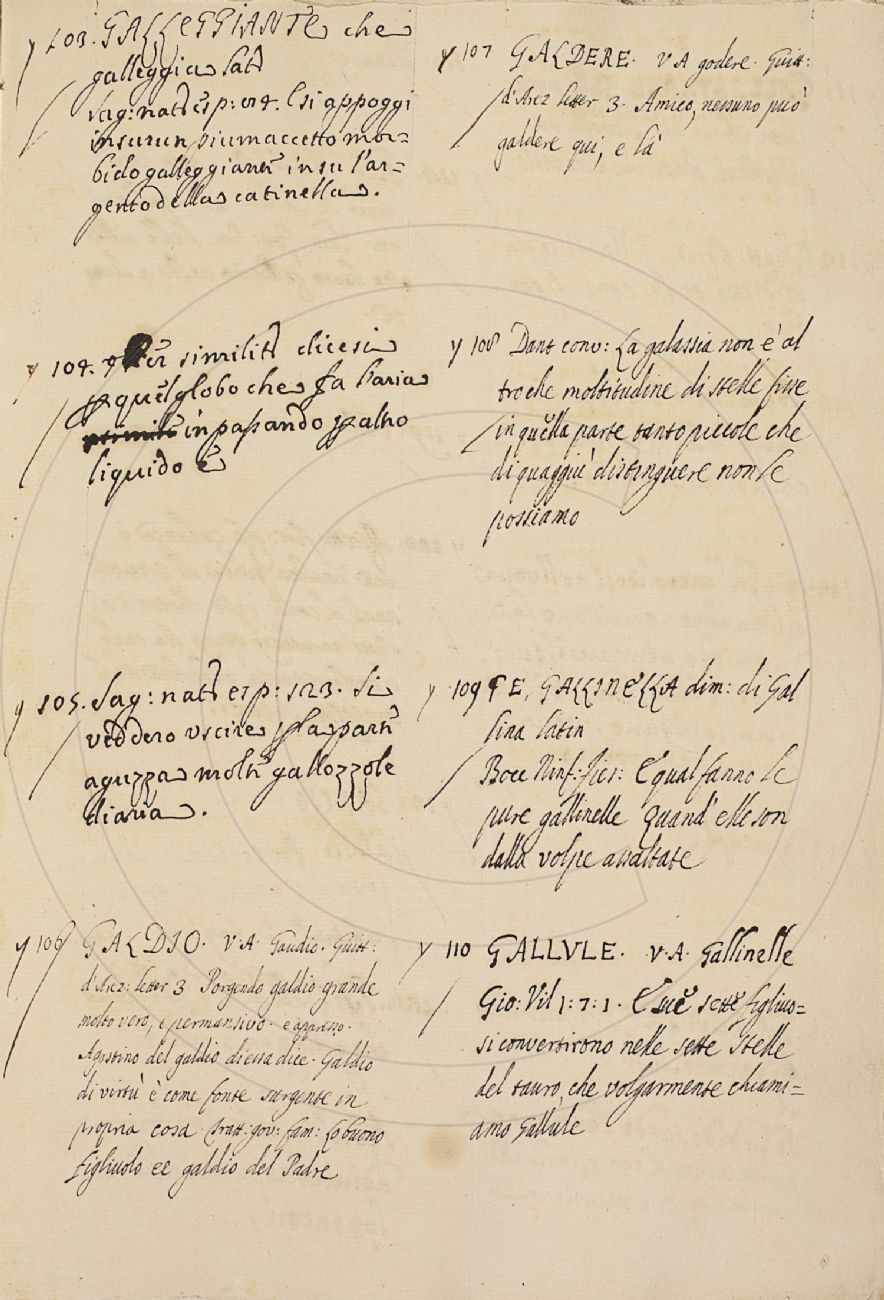 103. GALLEGGIANTE che
galleggia Lat
Sag: nat: esp: 54. E si appoggi
in su run piumaccetto mor=
bido galleggiante in su l'ar=
gento della catinella.
104. Per similit dicesi
quel globo che fa l'aria
in passando p altro
liquido
105. Sag: nat esp: 123. Si
veddero uscire p la parte
aguzza molte gallozzole
d'aria.
106 GALDIO. V.A. Gaudio. Guitt:
d'Arez: letter 3 Porgendo galdio grande
molto vero, e permansivo. e appresso.
Agostino del galdio di essa dice. Galdio
di virtù è come fonte surgente in
propria cosa. tratt: gov: fam: Lo buono
figliuolo ee galdio del Padre
107 GALDERE. V A godere. Guitt:
d'Arez letter 3. Amico, nessuno può
galdere qui, e là
108 Dant conv: La galassia non è al
tro che moltitudine di stelle fisse
in quella parte tanto piccole che
di quaggiù distinguere non le
possiamo
109 E, GALLINELLA dim: di Gal
lina latin
Bocc Ninf: fies: E qual fanno le
pure gallinelle Quand' elle son
dalla volpe assaltate
110 GALLULE. V.A. Gallinelle
Gio: Vil 1: 7: 1. E sue sette figliuo=
si convertirono nelle sette Stelle
del tauro, che volgarmente chiami=
amo Gallule